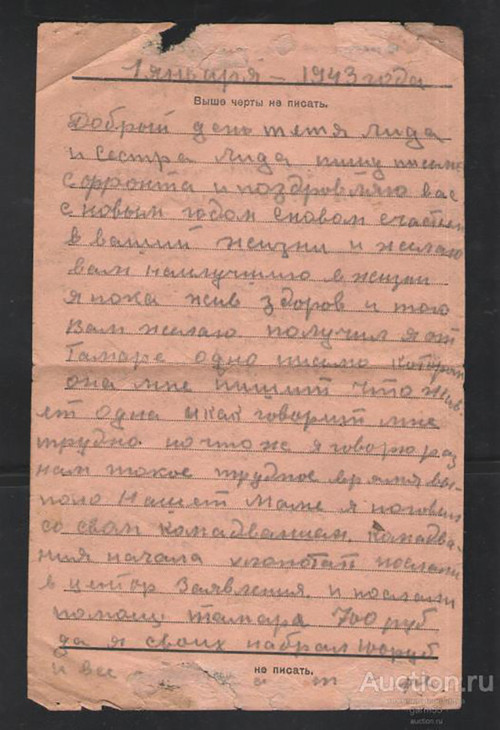 1 января – 1943 года
Выше черты не писать.
Добрый день тетя Лида
и сестра Лида пишу письмо
с фронта и поздровляю вас
с новым годом с новом счастем
в вашей жизни и желаю
вам наилучшию в жизни
я пока жив здоров и того
Вам желаю получил я от
Тамаре одно писмо которой
она мне пишит что жив-
ет одна и как говорит мне
трудно но что ж я говорю раз
нам такое трудное время вы-
пало Нашет Маме я поговорил
со своим командванием. командва-
ния начала послали
в центор Заявления и послали
помощ тамара 700 руб
да я своих набрал руб
и все
не писать.
Auction.ru
auction.ru